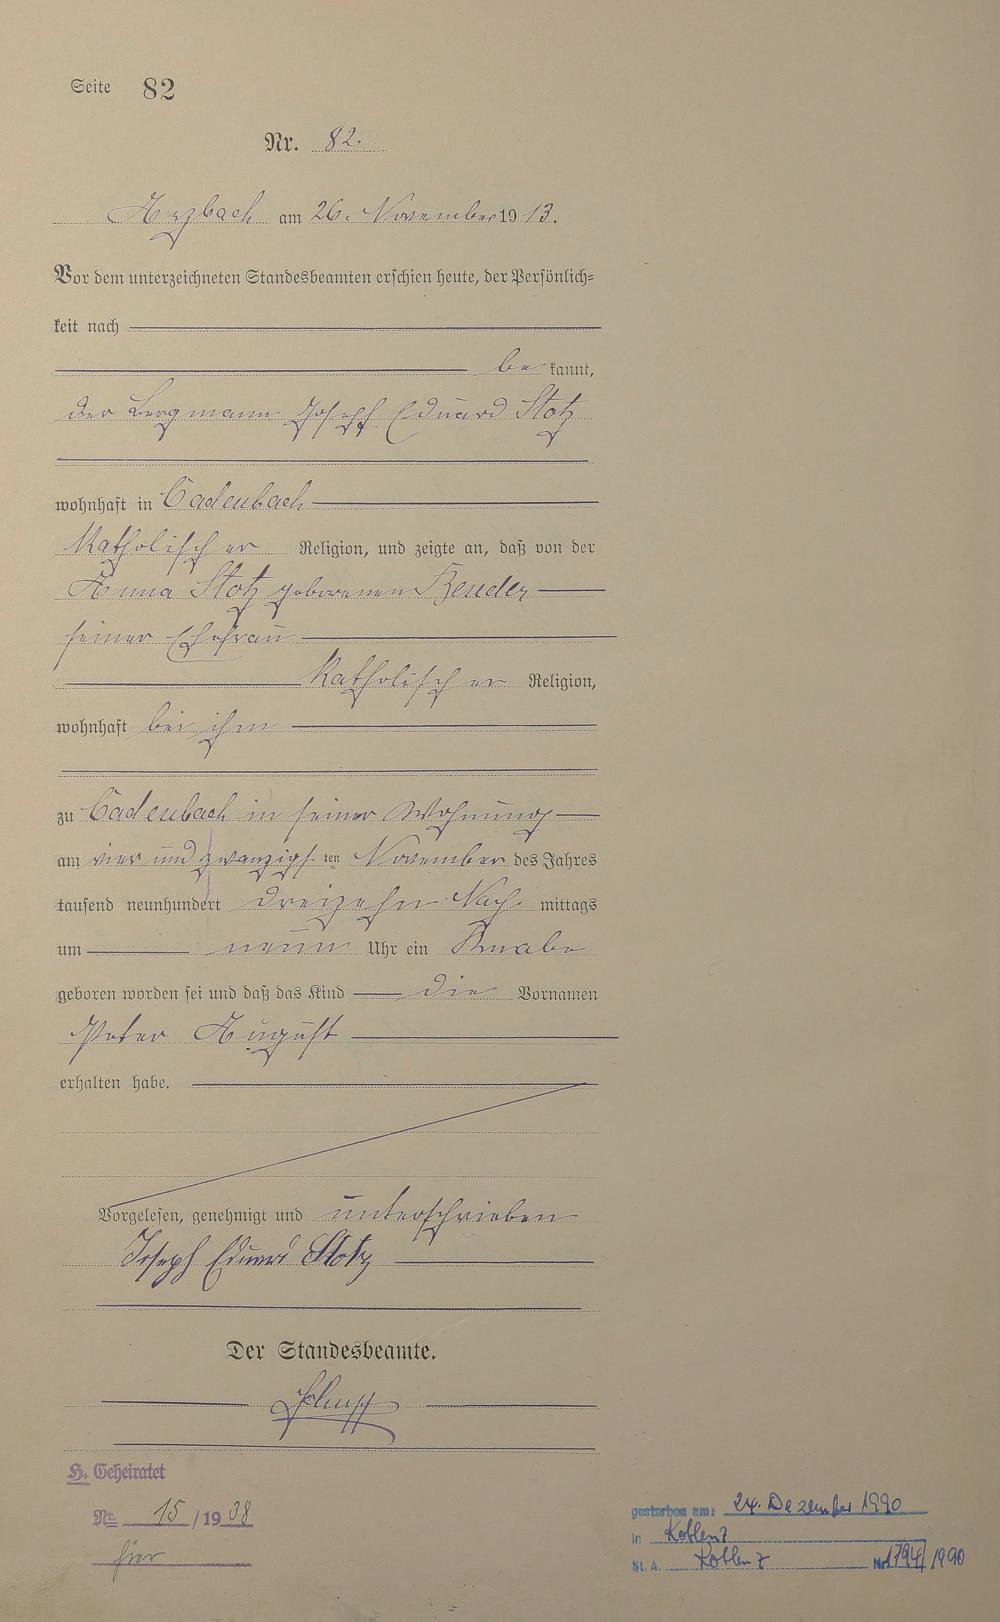 Seite 82
Nr. 82.
Arzbach am 26. November 1913.
Vor dem unterzeichneten Standesbeamten erschien heute, der Persönlich-
keit nach
be kannt,
der Bergmann Joseph Eduard Stotz
wohnhaft in Cadenbach
Katholischer Religion, und zeigte an, daß von der
Anna Stotz geborenen Bender
seiner Ehefrau
Katholischer Religion,
wohnhaft bei ihm
zu Cadenbach in seiner Wohnung
am vier und zwanzigsten November des Jahres
tausend neunhundert dreizehn Nach mittags
um neun Uhr ein Knabe
geboren worden sei und daß das Kind die Vornamen
Peter August
erhalten habe.
Vorgelesen, genehmigt und unterschrieben
Joseph Eduard Stotz
Der Standesbeamte.
H. Geheiratet
Nr. 15 / 19 38
hier
gestorben am: 24. Dezember 1990
in Koblenz
St. A. Koblenz Nr. 1794/1990